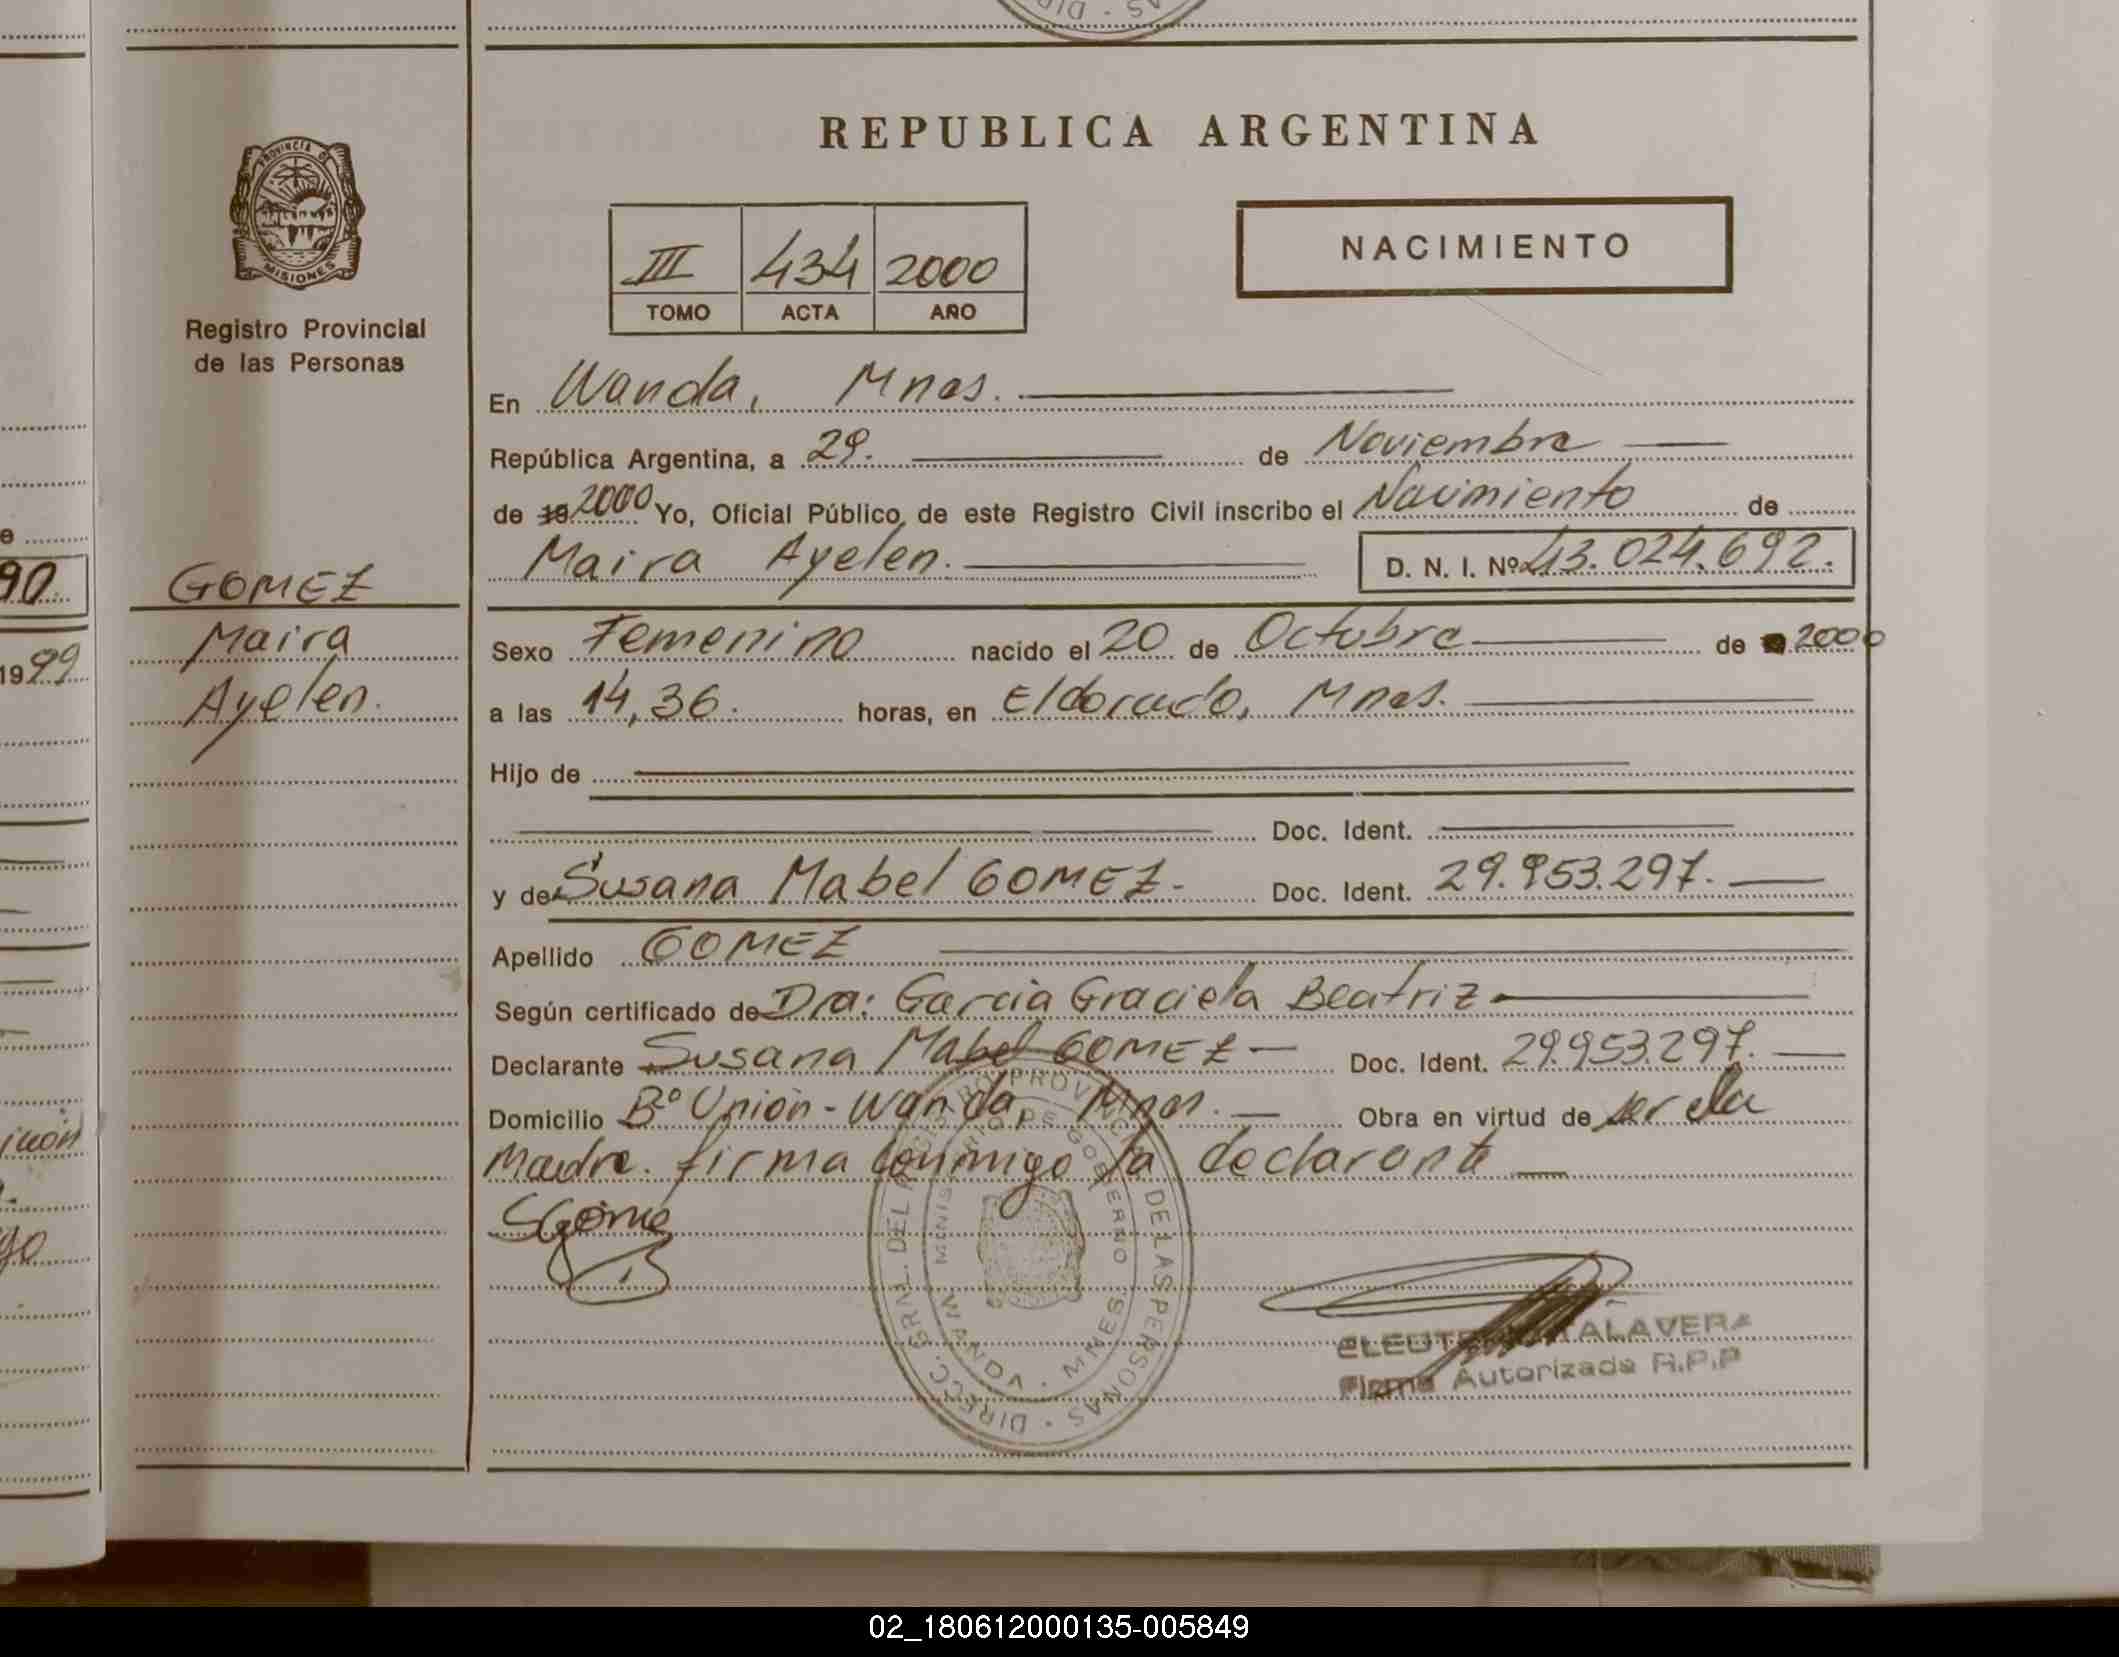 REPUBLICA ARGENTINA
PROVINCIA DE
MISIONES
Registro Provincial
de las Personas
III 434 2000
TOMO ACTA AÑO
NACIMIENTO
En Wanda, Mnes.
República Argentina, a 29. de Noviembre
de 19 2000 Yo, Oficial Público, de este Registro Civil inscribo el Nacimiento de
Maira Ayelen. D. N. I. Nº 43.024.692.
GOMEZ
Maira
Ayelen.
Sexo Femenino nacido el 20 de Octubre de 2000
a las 14,36. horas, en Eldorado, Mnes.
Hijo de
Doc. Ident.
y de Susana Mabel GOMEZ- Doc. Ident. 29.953.297.
Apellido GOMEZ
Según certificado de Dra: Garcia Graciela Beatriz
Declarante Susana Mabel GOMEZ- Doc. Ident. 29.953.297.
Domicilio Bº Unión - Wanda, Mnes. Obra en virtud de ser la
Madre. firma conmigo la declarante
SGome
DIRECC. GRAL. DEL REGISTRO PROVINCIAL DE LAS PERSONAS
MINISTERIO DE GOBIERNO
WANDA · MNES.
TALAVERA
Firma Autorizada R.P.P
90.
1999
02_180612000135-005849